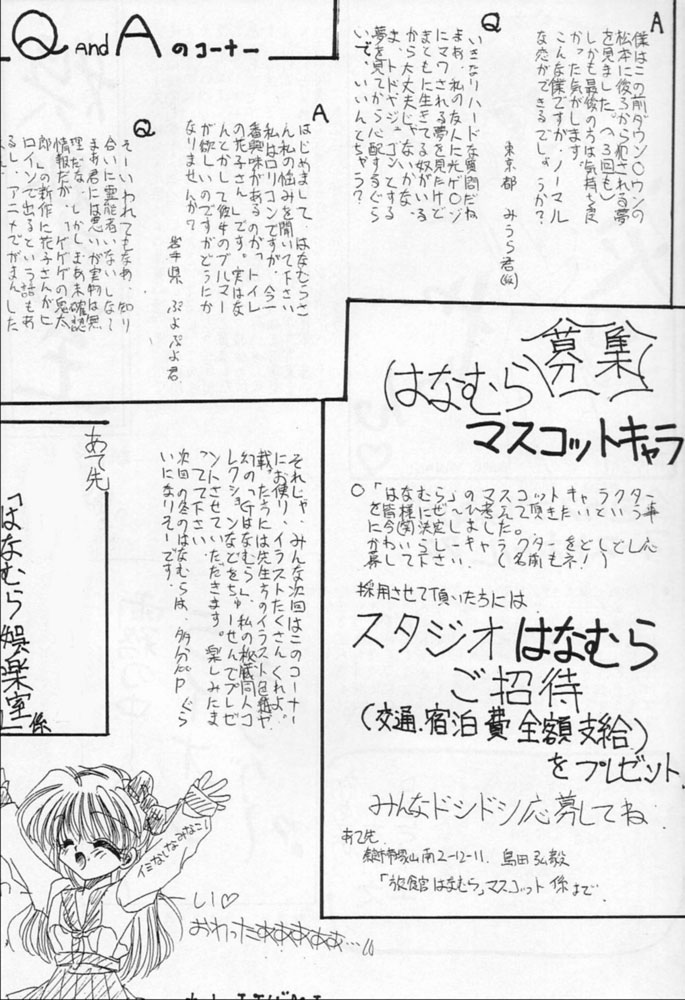 Q AND A のコーナー
A
僕はこの前ダウン〇ウンの
松本に後ろから犯される夢
を見ました。(へ3回も)
しかも最後の方は気持ち良
かった気がします。
こんな僕ですが、ノーマル
な恋ができるでしょうか?
東京都 みうら君
Q
いきなりハードな質問だね
まぁ、私の友人に光ゲ〇ジ
にマワされる夢を見たけど
まともに生きてる奴がいる
から大丈夫じゃないかな。
ま、トドやジュゴンとする
夢を見てから心配するぐら
いで、いいんとちゃう?
A
はじめまして、はなむらさ
ん、私の悩みを聞いて下さい
私はロリコンですが、今一
番興味があるのが「トイレ
の花子さん」です。実はな
んとかして彼女のブルマー
が欲しいのですがどうにか
なりませんか?
岩手県 ぷよぷよ君
Q
そーいわれてもなぁ、知り
合いに霊能者いないしなぁ
まぁ君には悪いが実物は無
理だな、しかしまあ未確認
情報だが、「ゲゲゲの鬼太
郎」の新作に花子さんがヒ
ロインで出るという話もあ
るし、アニメでがまんした
募集
はなむら
マスコットキャラ
○「はなむら」のマスコットキャラクター
を皆様にぜひ考えて頂きたいという事
に今(笑)決定しました。
かわいらしーいキャラクターをどしどし応
募して下さい。(名前もネ!)
採用させて頂いた方には
スタジオはなむら
ご招待
(交通.宿泊費全額支給)
をプレゼント.
みんなドシドシ応募してね.
あて先
2-12-11. 島田弘毅
「旅館はなむら」マスコット係まで
それじゃ、みんな次回はこのコーナー
にお便り、イラストたくさんくれよ。
載った方には先生方のイラスト色紙や
幻の「Gはなむら」、私の秘蔵同人コ
レクションなどをちゅーせんでプレゼ
ントさせていただきます。楽しみにま
ってて下さい。
次回の冬のはなむらは、多分60Pぐら
いになりそーです。
あて先
「はなむら娯楽室」係
しい♡
おわったああああぁ…〃